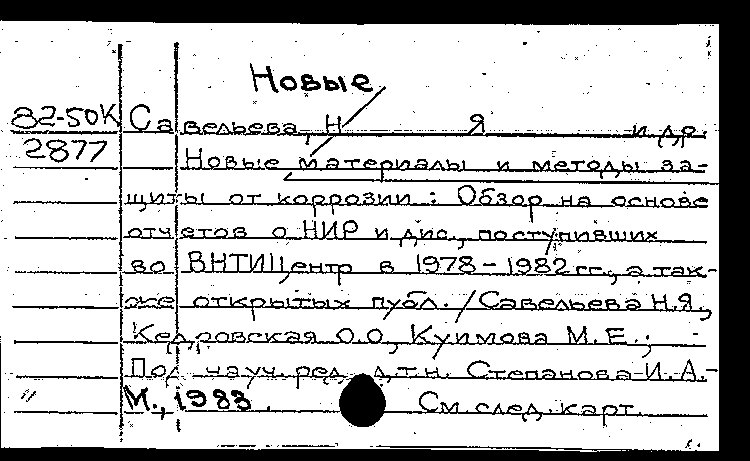 Новые
82-50К Савельева, Н Я и др.
2877 Новые материалы и методы за-
щиты от коррозии : Обзор на основе
отчетов о НИР и дис., поступивших
во ВНТИЦентр в 1978-1982 гг., а так-
же открытых публ. / Савельева Н.Я.,
Кедровская О.О, Куимова М.Е.;
Под науч. ред. д.т.н. Степанова И.А.-
М., 1983. См. след. карт.